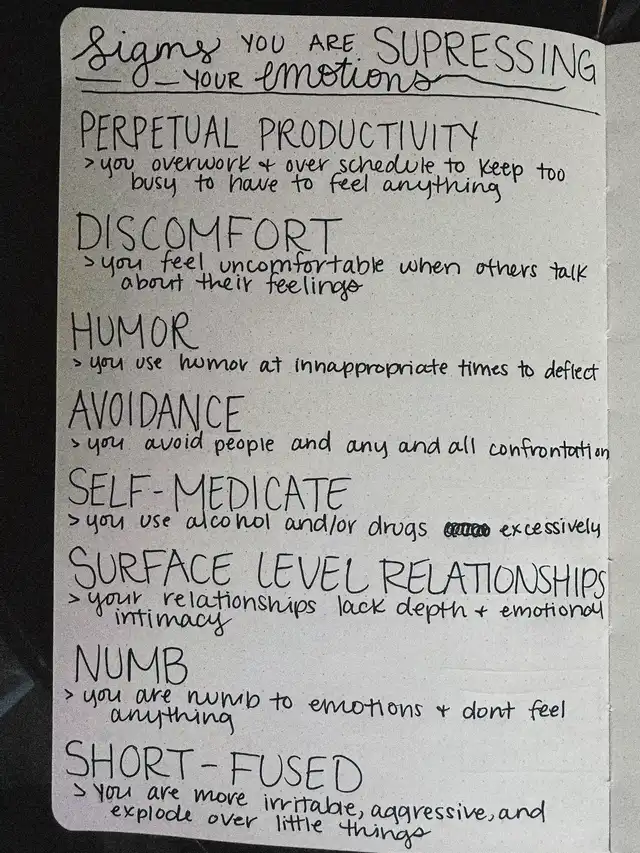 Signs YOU ARE SUPRESSING
YOUR emotions
PERPETUAL PRODUCTIVITY
> you overwork + over schedule to keep too
busy to have to feel anything
DISCOMFORT
> you feel uncomfortable when others talk
about their feelings
HUMOR
> you use humor at innappropriate times to deflect
AVOIDANCE
> you avoid people and any and all confrontation
SELF-MEDICATE
> you use alcohol and/or drugs excessively
SURFACE LEVEL RELATIONSHIPS
> your relationships lack depth + emotional
intimacy
NUMB
> you are numb to emotions + dont feel
anything
SHORT-FUSED
> You are more irritable, aggressive, and
explode over little things